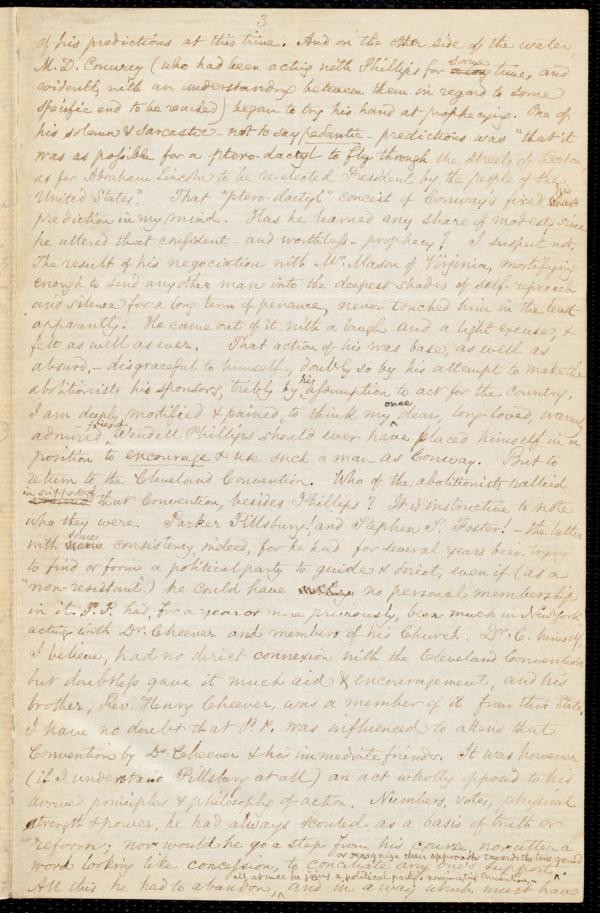 3
of his predictions at this time. And on the other side of the water,
M. D. Conway (who had been acting with Phillips for some time, and
evidently with an understanding between them in regard to some
specific end to be reached) began to try his hand at prophecying. One of
his solemn & sarcastic - not to say pedantic - predictions was "that it
was as possible for a ptero-dactyl to fly through the streets of Boston,
as for Abraham Lincoln to be re-elected President by the people of the
United States." That "ptero-dactyl" conceit of Conway's fixed the
prediction in my mind. Has he learned any share of modesty since
he uttered that confident - and worthless - prophecy? I suspect not.
The result of his negociation with Mr. Mason of Virginia, mortifying
enough to send any other man into the deepest shades of self-reproach
and silence for a long term of penance, never touched him in the least
apparently. He came out of it with a laugh and a light excuse, &
felt as well as ever. That action of his was base, as well as
absurd, - disgraceful to himself, doubly so by his attempt to make the
abolitionists his sponsors, trebly by his assumption to act for the country.
I am deeply mortified & pained, to think my once dear, long-loved, warmly
admired friend Wendell Phillips should ever have placed himself in a
position to encourage & use such a man as Conway. But to
return to the Cleveland Convention. Who of the abolitionists rallied
in support of that Convention, besides Phillips? It is instructive to note
who they were. Parker Pillsbury! and Stephen S. Foster! - the latter
with some consistency indeed, for he had for several years been trying
to find or form a political party to guide & direct, even if (as a
"non-resistant") he could have no personal membership
in it. P. P. had, for a year or more previously, been much in New York
acting with Dr. Cheever and members of his Church. Dr. C. himself,
I believe, had no direct connexion with the Cleveland Convention
but doubtless gave it much aid & encouragement, and his
brother, Rev. Henry Cheever, was a member of it from this State.
I have no doubt that P. P. was influenced to attend that
Convention by Dr Cheever & his immediate friends. It was however
(if I understand Pillsbury at all) an act wholly opposed to his
avowed principles & philosophy of action. Numbers, votes, physical
strength & power, he had always scouted as a basis of truth or
reform; nor would he go a step from his course, nor utter a
word looking like concession, to conciliate any one's support, or recognize their approach towards his ground
All this he had to abandon, all at once he joins a political party's nominating Convention, and in a way which must have